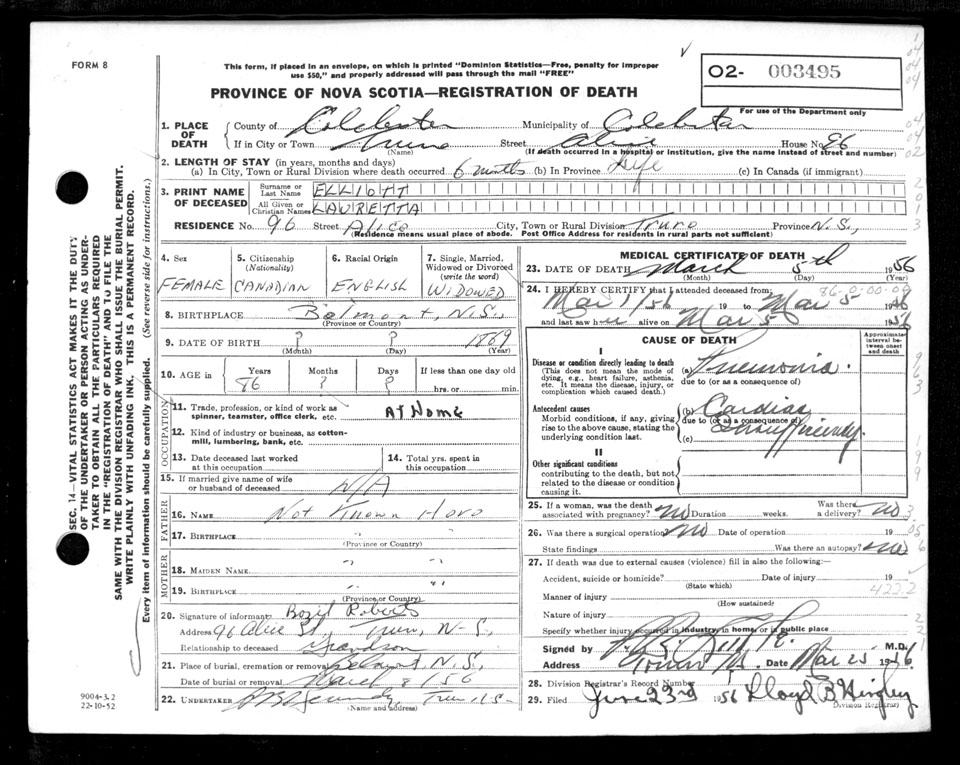 FORM 8
This form, if placed in an envelope, on which is printed "Dominion Statistics—Free, penalty for improper use $50," and properly addressed will pass through the mail "FREE"
O2- 003495
For use of the Department only
PROVINCE OF NOVA SCOTIA—REGISTRATION OF DEATH
1. PLACE OF DEATH County of Colchester Municipality of Colchester
If in City or Town Truro Street Alice House No 96
(If death occurred in a hospital or institution, give the name instead of street and number)
2. LENGTH OF STAY (in years, months and days)
(a) In City, Town or Rural Division where death occurred 6 months (b) In Province Life (c) In Canada (if immigrant)
3. PRINT NAME OF DECEASED
Surname or Last Name ELLIOTT
All Given or Christian Names LAURETTA
RESIDENCE No. 96 Street Alice City, Town or Rural Division Truro Province N.S.,
(Residence means usual place of abode. Post Office Address for residents in rural parts not sufficient)
4. Sex
FEMALE
5. Citizenship (Nationality)
CANADIAN
6. Racial Origin
ENGLISH
7. Single, Married, Widowed or Divorced (write the word)
WIDOWED
8. BIRTHPLACE Belmont, N.S.,
(Province or Country)
9. DATE OF BIRTH ? ? 1869
(Month) (Day) (Year)
10. AGE in Years Months Days If less than one day
86 ? ? hrs. or min.
OCCUPATION
11. Trade, profession, or kind of work as spinner, teamster, office clerk, etc. AT HOME
12. Kind of industry or business, as cotton-mill, lumbering, bank, etc.
13. Date deceased last worked at this occupation
14. Total yrs. spent in this occupation
15. If married give name of wife or husband of deceased N/A
FATHER
16. NAME Not Known
17. BIRTHPLACE " "
(Province or Country)
MOTHER
18. MAIDEN NAME " "
19. BIRTHPLACE " "
(Province or Country)
20. Signature of informant Roberts
Address 96 Alice St., Truro, N-S.,
Relationship to deceased Grandson
21. Place of burial, cremation or removal Belmont, N.S.,
Date of burial or removal March 8/56
22. UNDERTAKER Truro N.S.
(Name and address)
MEDICAL CERTIFICATE OF DEATH
23. DATE OF DEATH March 5th 1956
(Month) (Day) (Year)
24. I HEREBY CERTIFY that I attended deceased from:
Mar 1/56 19 to Mar 5 1956
and last saw her alive on Mar 5 1956
CAUSE OF DEATH
Approximate interval between onset and death
I
Disease or condition directly leading to death
(This does not mean the mode of dying, e.g., heart failure, asthenia, etc. It means the disease, injury, or complication which caused death.)
(a) Pneumonia.
due to (or as a consequence of)
Antecedent causes
Morbid conditions, if any, giving rise to the above cause, stating the underlying condition last.
(b) Cardiac
due to (or as a consequence of)
(c)
II
Other significant conditions
contributing to the death, but not related to the disease or condition causing it.
25. If a woman, was the death associated with pregnancy? No Duration weeks. Was there a delivery? No
26. Was there a surgical operation? No Date of operation 19
State findings Was there an autopsy? No
27. If death was due to external causes (violence) fill in also the following:—
Accident, suicide or homicide? Date of injury 19
(State which)
Manner of injury 4222
(How sustained)
Nature of injury
Specify whether injury occurred in industry, in home, or in public place
Signed by M.D.
Address Truro NS. Date Mar 25 1956
28. Division Registrar's Record Number
29. Filed June 23rd 1956 Lloyd B Hingley
Division Registrar)
SEC. 14—VITAL STATISTICS ACT MAKES IT THE DUTY OF THE UNDERTAKER OR PERSON ACTING AS UNDERTAKER TO OBTAIN ALL THE PARTICULARS REQUIRED IN THE "REGISTRATION OF DEATH" AND TO FILE THE SAME WITH THE DIVISION REGISTRAR WHO SHALL ISSUE THE BURIAL PERMIT.
WRITE PLAINLY WITH UNFADING INK. THIS IS A PERMANENT RECORD.
Every item of information should be carefully supplied. (See reverse side for instructions.)
9004-3.2
22-10-52